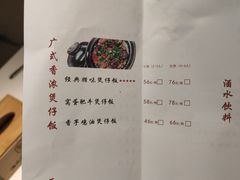 广式香浓煲仔饭
经典腊味煲仔饭★★★★★ 56元/例□ 76元/例□
窝蛋肥牛煲仔饭 58元/例□ 78元/例□
香芋鸡油煲仔饭 48元/例□ 68元/例□
酒水饮料